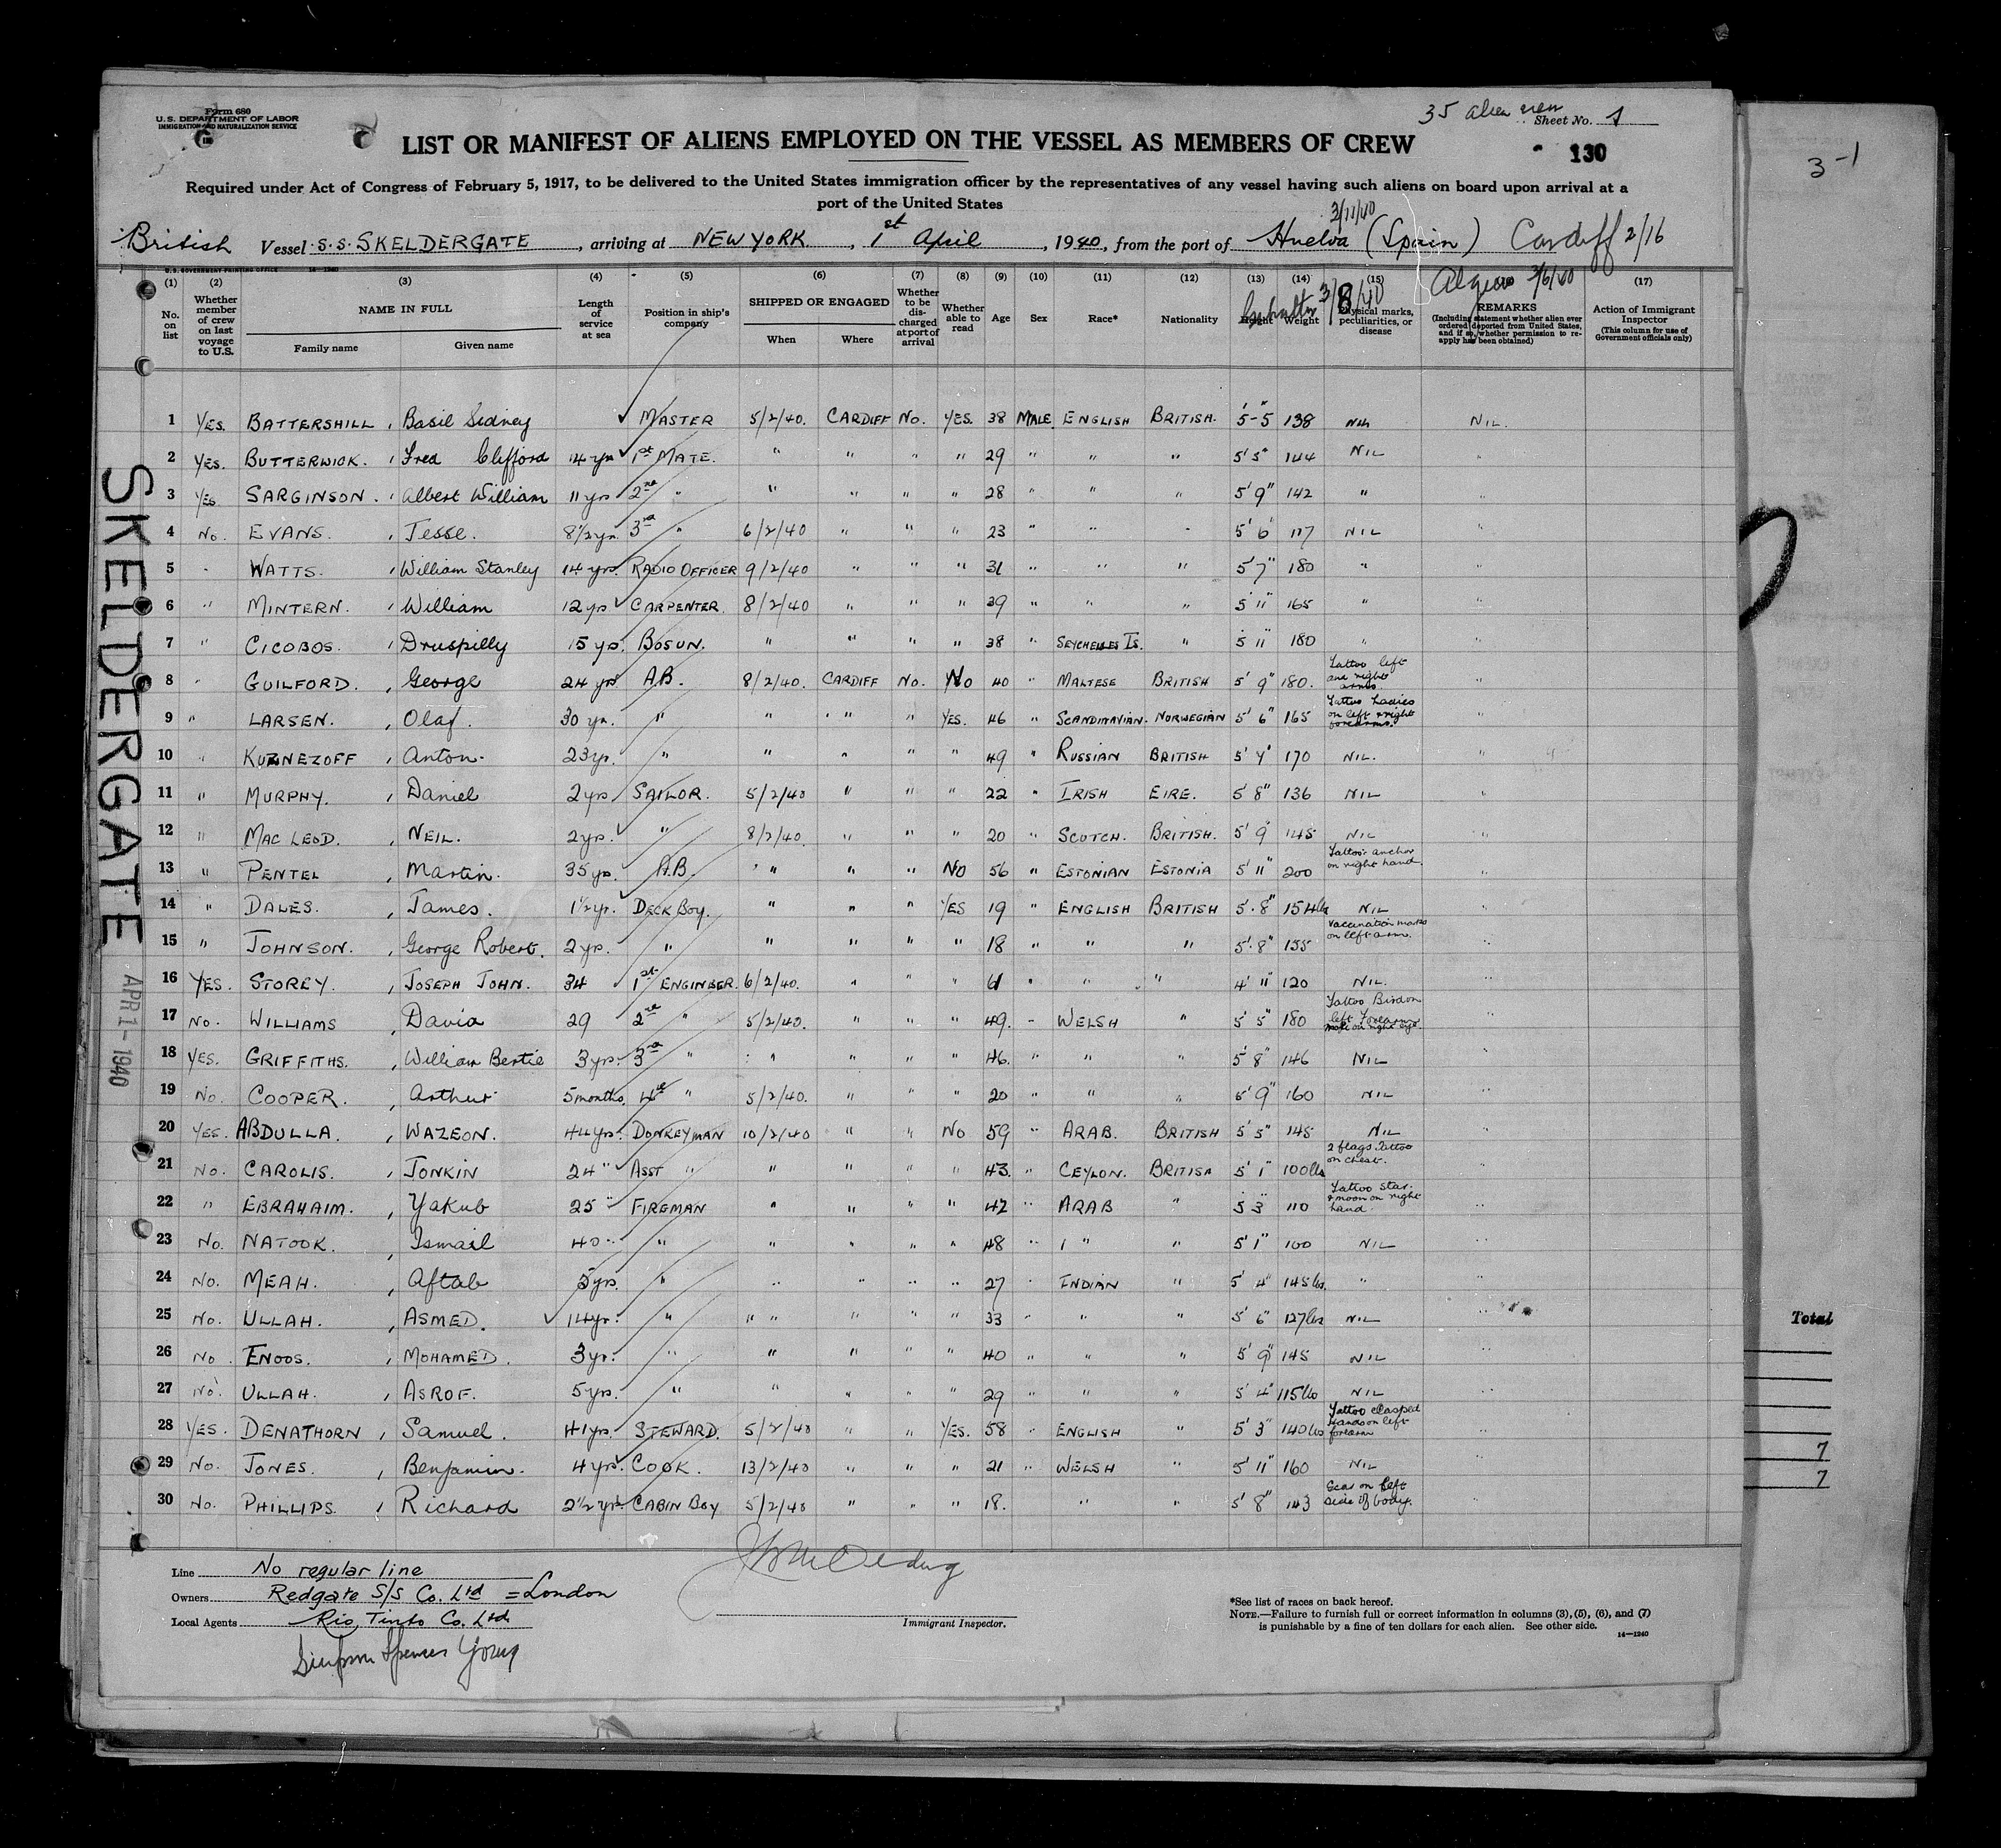 Form 680
U.S. DEPARTMENT OF LABOR
IMMIGRATION AND NATURALIZATION SERVICE
35 alien crew
Sheet No. 1
LIST OR MANIFEST OF ALIENS EMPLOYED ON THE VESSEL AS MEMBERS OF CREW
130
3-1
Required under Act of Congress of February 5, 1917, to be delivered to the United States immigration officer by the representatives of any vessel having such aliens on board upon arrival at a
port of the United States
3/11/40
British Vessel S.S. SKELDERGATE, arriving at NEW YORK, 1st April, 1940, from the port of Huelva (Spain) Cardiff 2/16
U.S. GOVERNMENT PRINTING OFFICE 14-1240
3/8/40
3/6/40
(1) No. on list
(2) Whether member of crew on last voyage to U.S.
(3) NAME IN FULL Family name Given name
(4) Length of service at sea
(5) Position in ship's company
(6) SHIPPED OR ENGAGED When Where
(7) Whether to be discharged at port of arrival
(8) Whether able to read
(9) Age
(10) Sex
(11) Race*
(12) Nationality
(13) Height
(14) Weight
(15) Physical marks, peculiarities, or disease
REMARKS (Including statement whether alien ever ordered deported from United States, and if so, whether permission to reapply has been obtained)
(17) Action of Immigrant Inspector (This column for use of Government officials only)
1 YES. BATTERSHILL, Basil Sidney MASTER 5/2/40. CARDIFF No. YES. 38 MALE. ENGLISH BRITISH. 5'-5" 138 NIL NIL.
2 YES. BUTTERWICK., Fred Clifford 14 yrs 1st MATE. " " " " 29 " " " 5'5" 144 NIL "
3 YES SARGINSON., Albert William 11 yrs 2nd " " " " " 28 " " " 5'9" 142 " "
4 No. EVANS., Jesse. 8½ yr. 3rd " 6/2/40 " " " 23 " " " 5'6 117 NIL "
5 " WATTS., William Stanley 14 yrs. RADIO OFFICER 9/2/40 " " " 31 " " " 5'7" 180 " "
6 " MINTERN., William 12 yrs CARPENTER. 8/2/40 " " " 39 " " " 5'11" 165 " "
7 " CICOBOS., Druspilly 15 yrs. BOSUN. " " " " 38 " SEYCHELLES IS. " 5 11 180 " "
8 " GUILFORD., George 24 yrs A.B. 8/2/40. CARDIFF No. No 40 " MALTESE BRITISH 5'9" 180. Tattoo left and right arms. "
9 " LARSEN., Olaf. 30 yr. " " " " YES. 46 " SCANDINAVIAN. NORWEGIAN 5'6" 165 Tattoo Ladies on left & right forearms. "
10 " KUZNEZOFF, Anton. 23 yr. " " " " " 49 " RUSSIAN BRITISH 5' 170 NIL. "
11 " MURPHY., Daniel 2 yrs SAILOR. 5/2/40 " " " 22 " IRISH EIRE. 5'8" 136 NIL "
12 " MAC LEOD., NEIL. 2 yrs. " 8/2/40. " " " 20 " SCOTCH. BRITISH. 5'9" 145 NIL "
13 " PENTEL, Martin. 35 yrs. A.B. " " " No 56 " ESTONIAN ESTONIA 5'11" 200 Tattoo anchor on right hand. "
14 " DALES., James. 1½ yr. DECK BOY. " " " YES 19 " ENGLISH BRITISH 5'.8" 154 lbs NIL "
15 " JOHNSON., George Robert. 2 yr. " " " " " 18 " " " 5'.8" 135 Vaccination marks on left arm. "
16 YES. STOREY., JOSEPH JOHN. 34 1st ENGINEER. 6/2/40. " " " 61 " " " 4'11" 120 NIL. "
17 No. WILLIAMS, David 29 2nd " 5/2/40. " " " 49. " WELSH " 5'5" 180 Tattoo Bird on left Forearm "
18 YES. GRIFFITHS., William Bertie 3 yrs. 3rd " " " " " 46. " " " 5'8" 146 NIL "
19 No. COOPER., Arthur 5 months. 4th " 5/2/40. " " " 20 " " " 5'9" 160 NIL "
20 YES. ABDULLA., WAZEON. 44 yrs. DONKEYMAN 10/2/40 " " No 59 " ARAB. BRITISH 5'5" 145 NIL "
21 No. CAROLIS., JONKIN 24 " ASST " " " " " 43. " CEYLON. BRITISH 5'1" 100 lbs 2 flags Tattoo on chest. "
22 " EBRAHAIM., Yakub 25 " FIREMAN " " " " 42 " ARAB " 5'3" 110 Tattoo star & moon on right hand. "
23 No. NATOOK., Ismail 40 " " " " " " 48 " " " 5'1" 100 NIL "
24 No. MEAH., Aftab 5 yrs. " " " " " 27 " INDIAN " 5'4" 145 lbs. " "
25 No. ULLAH., ASMED. 14 yr. " " " " " 33 " " " 5'6" 127 lbs NIL "
26 No. ENOOS., MOHAMED. 3 yr. " " " " " 40 " " " 5'9" 145 NIL "
27 No. ULLAH., ASROF. 5 yrs. " " " " " 29 " " " 5'4" 115 lbs NIL "
28 YES. DENATHORN, Samuel. 41 yrs. STEWARD. 5/2/40 " " YES. 58 " ENGLISH " 5'3" 140 lbs Tattoo clasped hands on left forearm "
29 No. JONES., Benjamin. 4 yrs. COOK. 13/2/40 " " " 21 " WELSH " 5'11" 160 NIL "
30 No. PHILLIPS., Richard 2½ yrs. CABIN BOY 5/2/40 " " " 18. " " " 5'8" 143 Scar on left side of body. "
SKELDERGATE
APR 1 - 1940
Total
7
7
Line No regular line
Owners Redgate S/S Co. Ltd = London
Local Agents Rio Tinto Co. Ltd.
Simpson Spence Young
Immigrant Inspector.
*See list of races on back hereof.
NOTE.—Failure to furnish full or correct information in columns (3), (5), (6), and (7)
is punishable by a fine of ten dollars for each alien. See other side.
14-1240